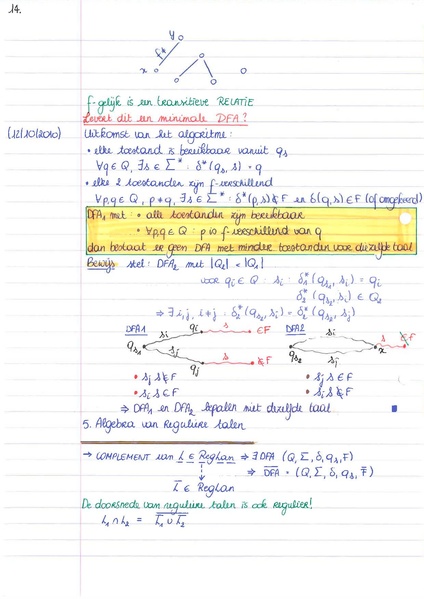 14.
y
f*
x
f-gelijk is een transitieve RELATIE
Levert dit een minimale DFA?
(12/10/2010) Uitkomst van het algoritme:
• elke toestand is bereikbaar vanuit qₛ
∀q ∈ Q, ∃s ∈ Σ* : δ*(qₛ, s) = q
• elke 2 toestanden zijn f-verschillend
∀p,q ∈ Q, p ≠ q, ∃s ∈ Σ* : δ*(p,s) ∉ F en δ(q,s) ∈ F (of omgekeerd)
DFA₁ met: • alle toestanden zijn bereikbaar
• ∀p,q ∈ Q : p is f-verschillend van q
dan bestaat er geen DFA met minder toestanden voor diezelfde taal
Bewijs stel: DFA₂ met |Q₂| < |Q₁|
voor qᵢ ∈ Q : sᵢ : δ₁*(qₛ₁, sᵢ) = qᵢ
δ₂*(qₛ₂, sᵢ) ∈ Q₂
⇒ ∃ i,j, i ≠ j : δ₂*(qₛ₂, sᵢ) = δ₂*(qₛ₂, sⱼ)
DFA1 qᵢ s ∈F DFA2 sᵢ s ∉F
sᵢ
qₛ₁ sⱼ qₛ₂ sⱼ x
qⱼ s ∉F
• sⱼ s ∉ F • sⱼ s ∉ F
• sᵢ s ∈ F • sᵢ s ∉ F
⇒ DFA₁ en DFA₂ bepalen niet dezelfde taal
5. Algebra van Reguliere talen
→ COMPLEMENT van L ∈ RegLan ⇒ ∃ DFA (Q, Σ, δ, qₛ, F)
⇒ D̅F̅A̅ = (Q, Σ, δ, qₛ, F̅)
L̅ ∈ RegLan
De doorsnede van reguliere talen is ook regulier!
L₁ ∩ L₂ = L̅₁̅ ̅∪̅ ̅L̅₂̅